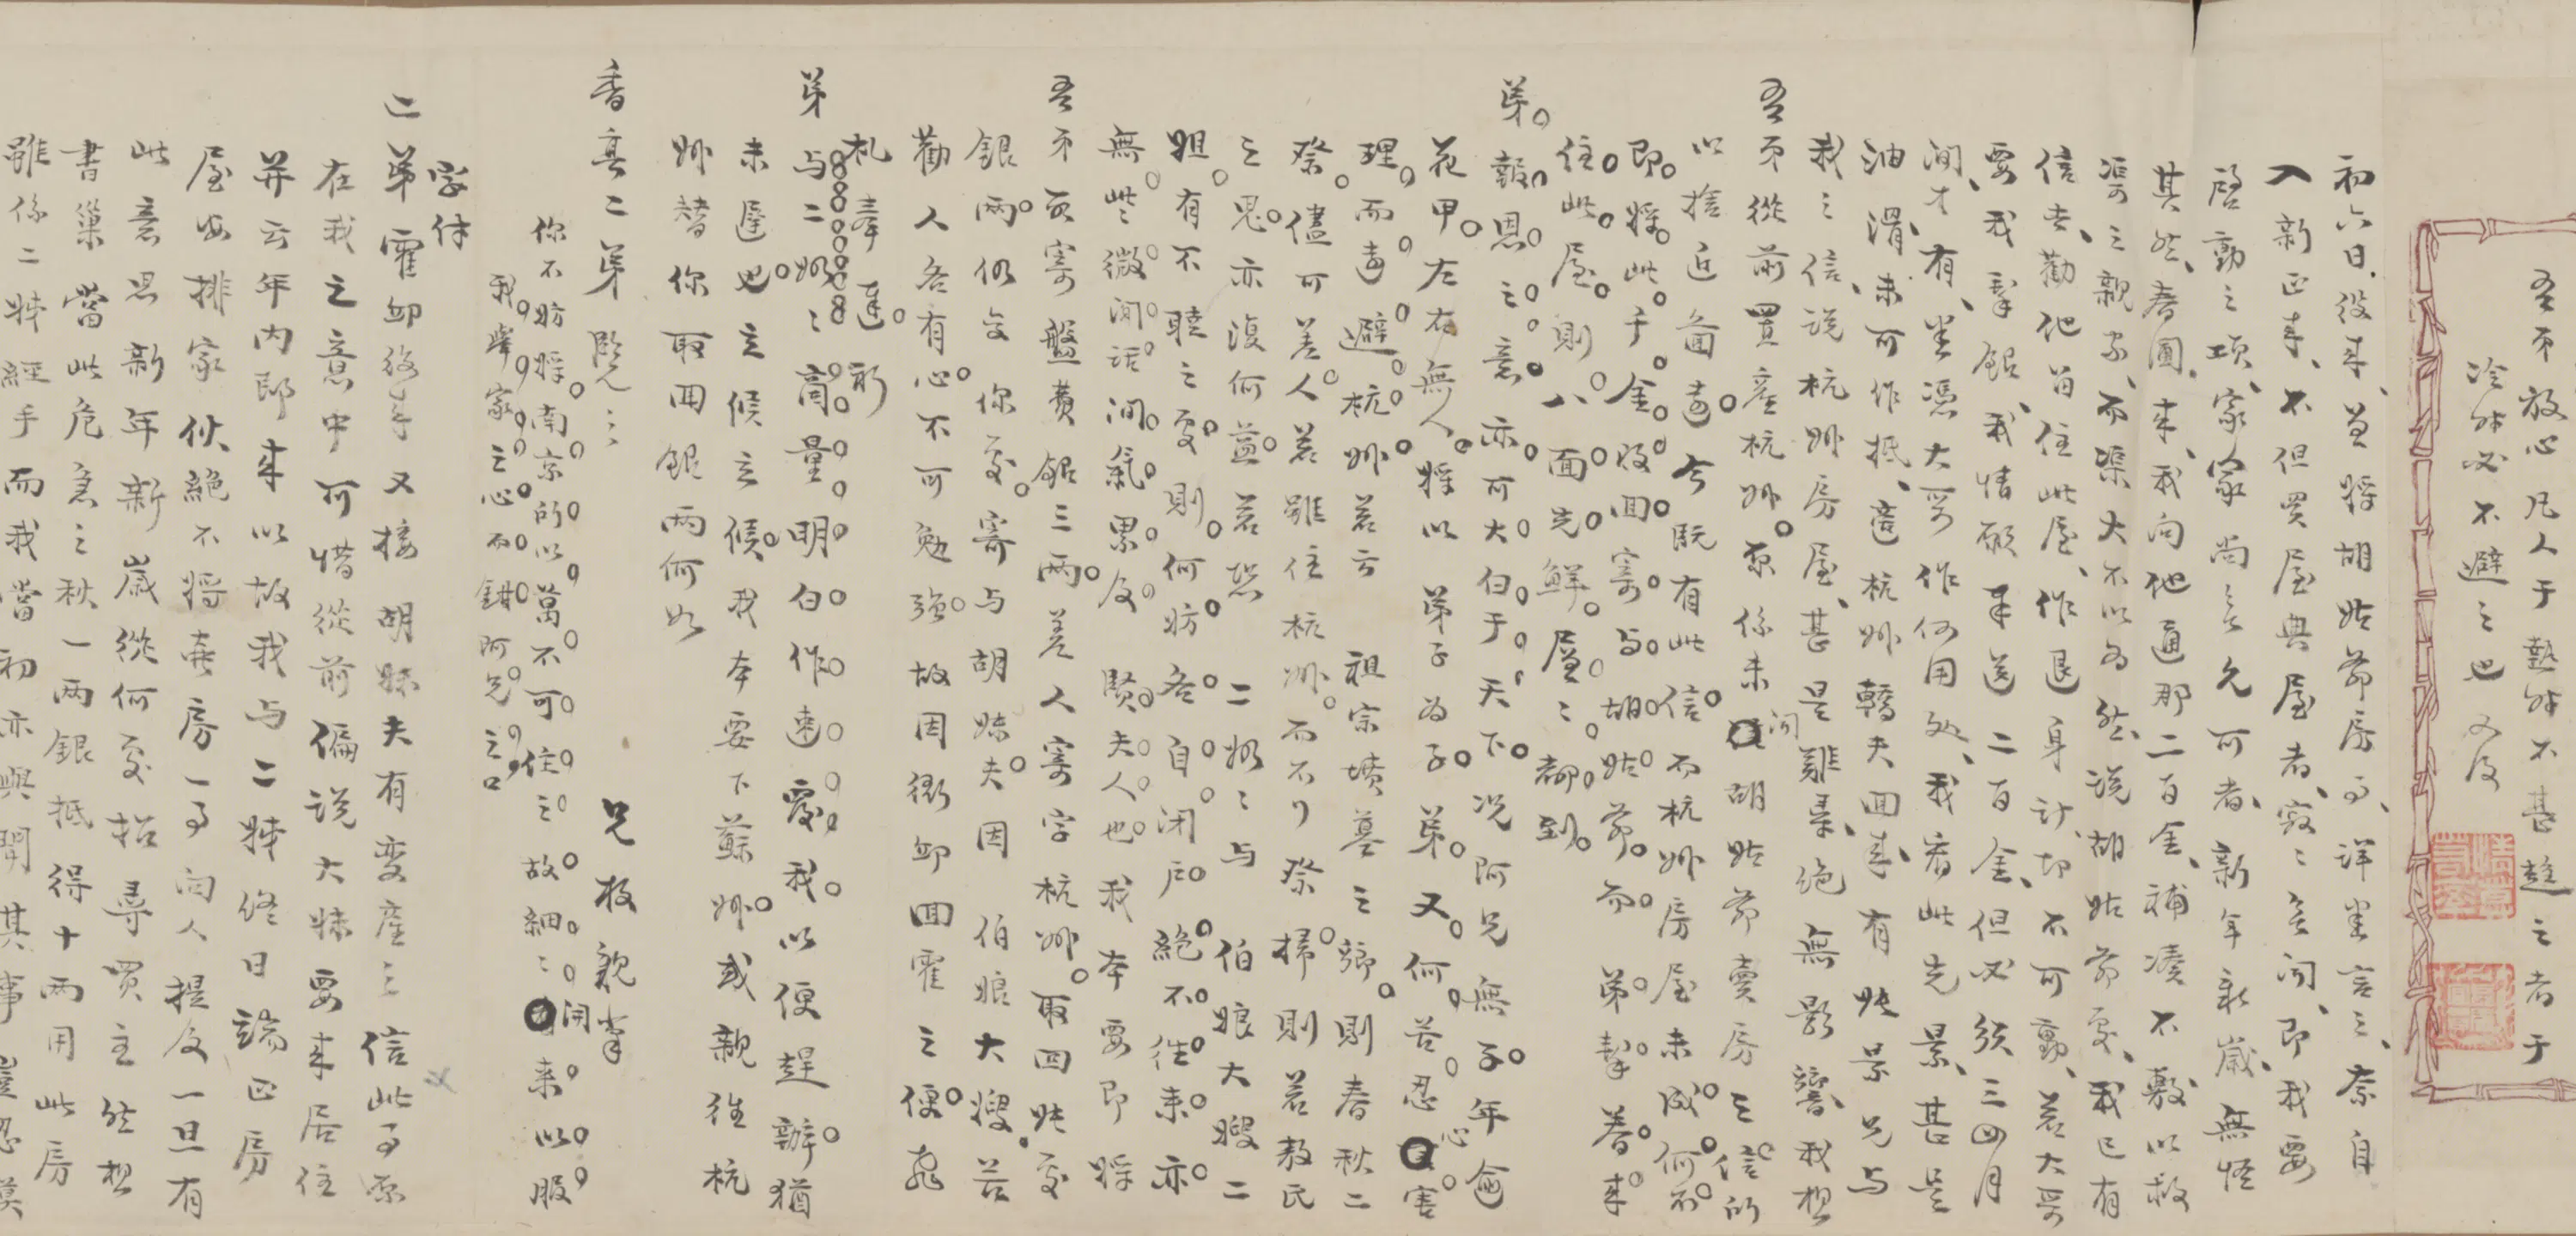 吾弟放心凡人于熱能不甚趨之者于
冷能必不避之也 又及
初六日役來並將胡姑爺房事詳告言之奈自
入新正來不但買屋典屋者寂寂無聞即我要
啓動之項家家尚無允可者新年新歲無怪
其然春圃來我向他通那二百金補湊不敷以救
渠之親家而渠大不以為然說胡姑爺處我已有
信去勸他留住此屋作退身計切不可動若大哥
要我拏銀我情願早送二百金但必須三四月
間才有並憑大哥作何用處我看此光景甚是
油滑未可作抵適杭州轎夫回來有姚景兄與
我之信說杭州房屋甚是難集絕無影響我想
吾弟從前置產杭州原係未聞胡姑爺賣房之信所
以捨近圖遠今既有此信而杭州房屋未成何不
即將此千金收回寄與胡姑爺而弟挈眷來
住此屋則八面光鮮層層都到
弟報恩之意亦可大白于天下況阿兄無子年逾
花甲左右無人將以弟子為子弟又何苦忍心害
理而遠避杭州若云祖宗墳墓之鄉則春秋二
祭儘可差人若雖住杭州而不行祭掃則若敖氏
之鬼亦復何益若恐二嫂嫂與伯娘大嫂二
姐有不睦之處則何妨各自閉戶絕不往來亦
無些微閒話閒氣累及賢夫人也我本要即將
吾弟所寄盤費銀三兩差人寄字杭州取回姚處
銀兩仍交你處寄與胡妹夫因伯娘大嫂苦
勸人各有心不可勉強故因衛卹回霍之便飛
札奉達祈
弟與二嫂嫂商量明白作速覆我以便趕辦猶
未遲也立候立候我本要下蘇州或親往杭
州替你取回銀兩何如
香亭二弟覽之
兄枚親筆
你不妨將南京所以萬不可住之故細細開來以服
我舉家之心而鉗阿兄之口
字付
二弟霍卹后來又接胡妹夫有变產之信此事原
在我之意中可惜從前偏說大妹要來居住
并云年內即來以故我與二姊終日端正房
屋安排家伙絕不將賣房一事向人提及一旦有
此意思新年新歲從何處招尋買主然想
書巢當此危急之秋一兩銀抵得十兩用此房
雖係二姊經手而我當初亦與聞其事豈忍漠